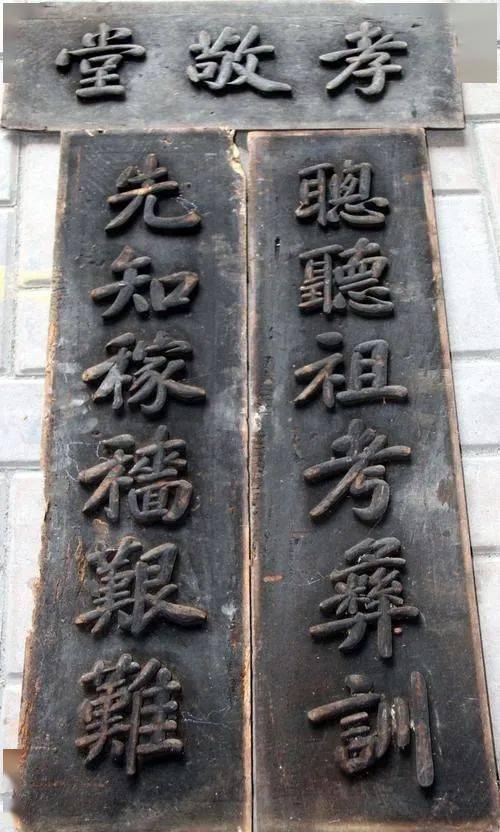 孝敬堂
聰聽祖考彝訓
先知稼穡艱難